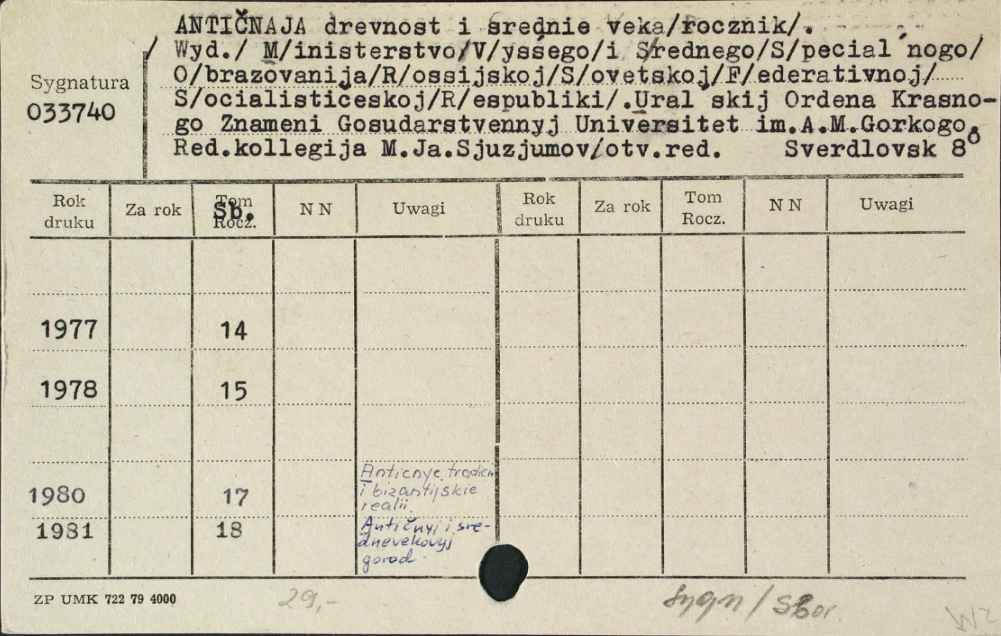 ANTIČNAJA drevnost i srednie veka/rocznik/.
/ Wyd./ M/inisterstvo/V/yssego/i Srednego/S/pecial´nogo/
O/brazovanija/R/ossijskoj/S/ovetskoj/F/ederativnoj/
S/ocialisticeskoj/R/espubliki/.Ural skij Ordena Krasno-
go Znameni Gosudarstvennyj Universitet im.A.M.Gorkogo.
Red.kollegija M.Ja.Sjuzjumov/otv.red. Sverdlovsk 8°
Sygnatura
033740
Rok druku Za rok Tom Rocz. Sb. N N Uwagi Rok druku Za rok Tom Rocz. N N Uwagi
1977 14
1978 15
1980 17 Anticnye tradicii
i bizantijskie
realii.
1981 18 Antičnyj i sre-
dnevekovyj
gorod
ZP UMK 722 79 4000 29,- sygn / Sbor.